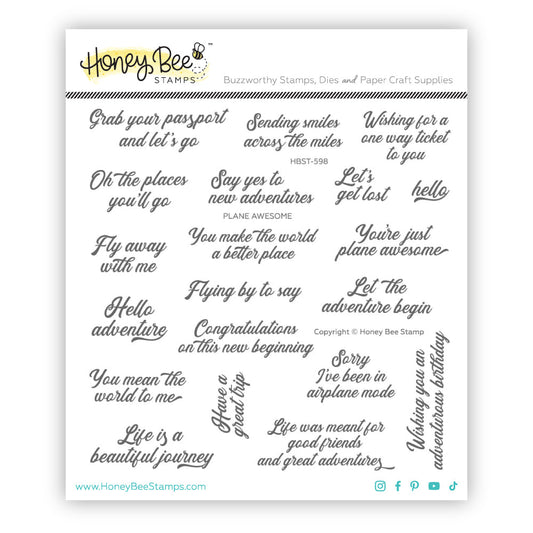 Honey Bee
STAMPS
™
Buzzworthy Stamps, Dies and Paper Craft Supplies
Grab your passport
and let's go
Sending smiles
across the miles
HBST-598
Wishing for a
one way ticket
to you
Oh the places
you'll go
Say yes to
new adventures
PLANE AWESOME
Let's
get lost
hello
Fly away
with me
You make the world
a better place
You're just
plane awesome
Flying by to say
Let the
adventure begin
Hello
adventure
Congratulations
on this new beginning
Copyright © Honey Bee Stamp
You mean the
world to me
Have a
great trip
Sorry
I've been in
airplane mode
Wishing you an
adventurous birthday
Life is a
beautiful journey
Life was meant for
good friends
and great adventures
www.HoneyBeeStamps.com